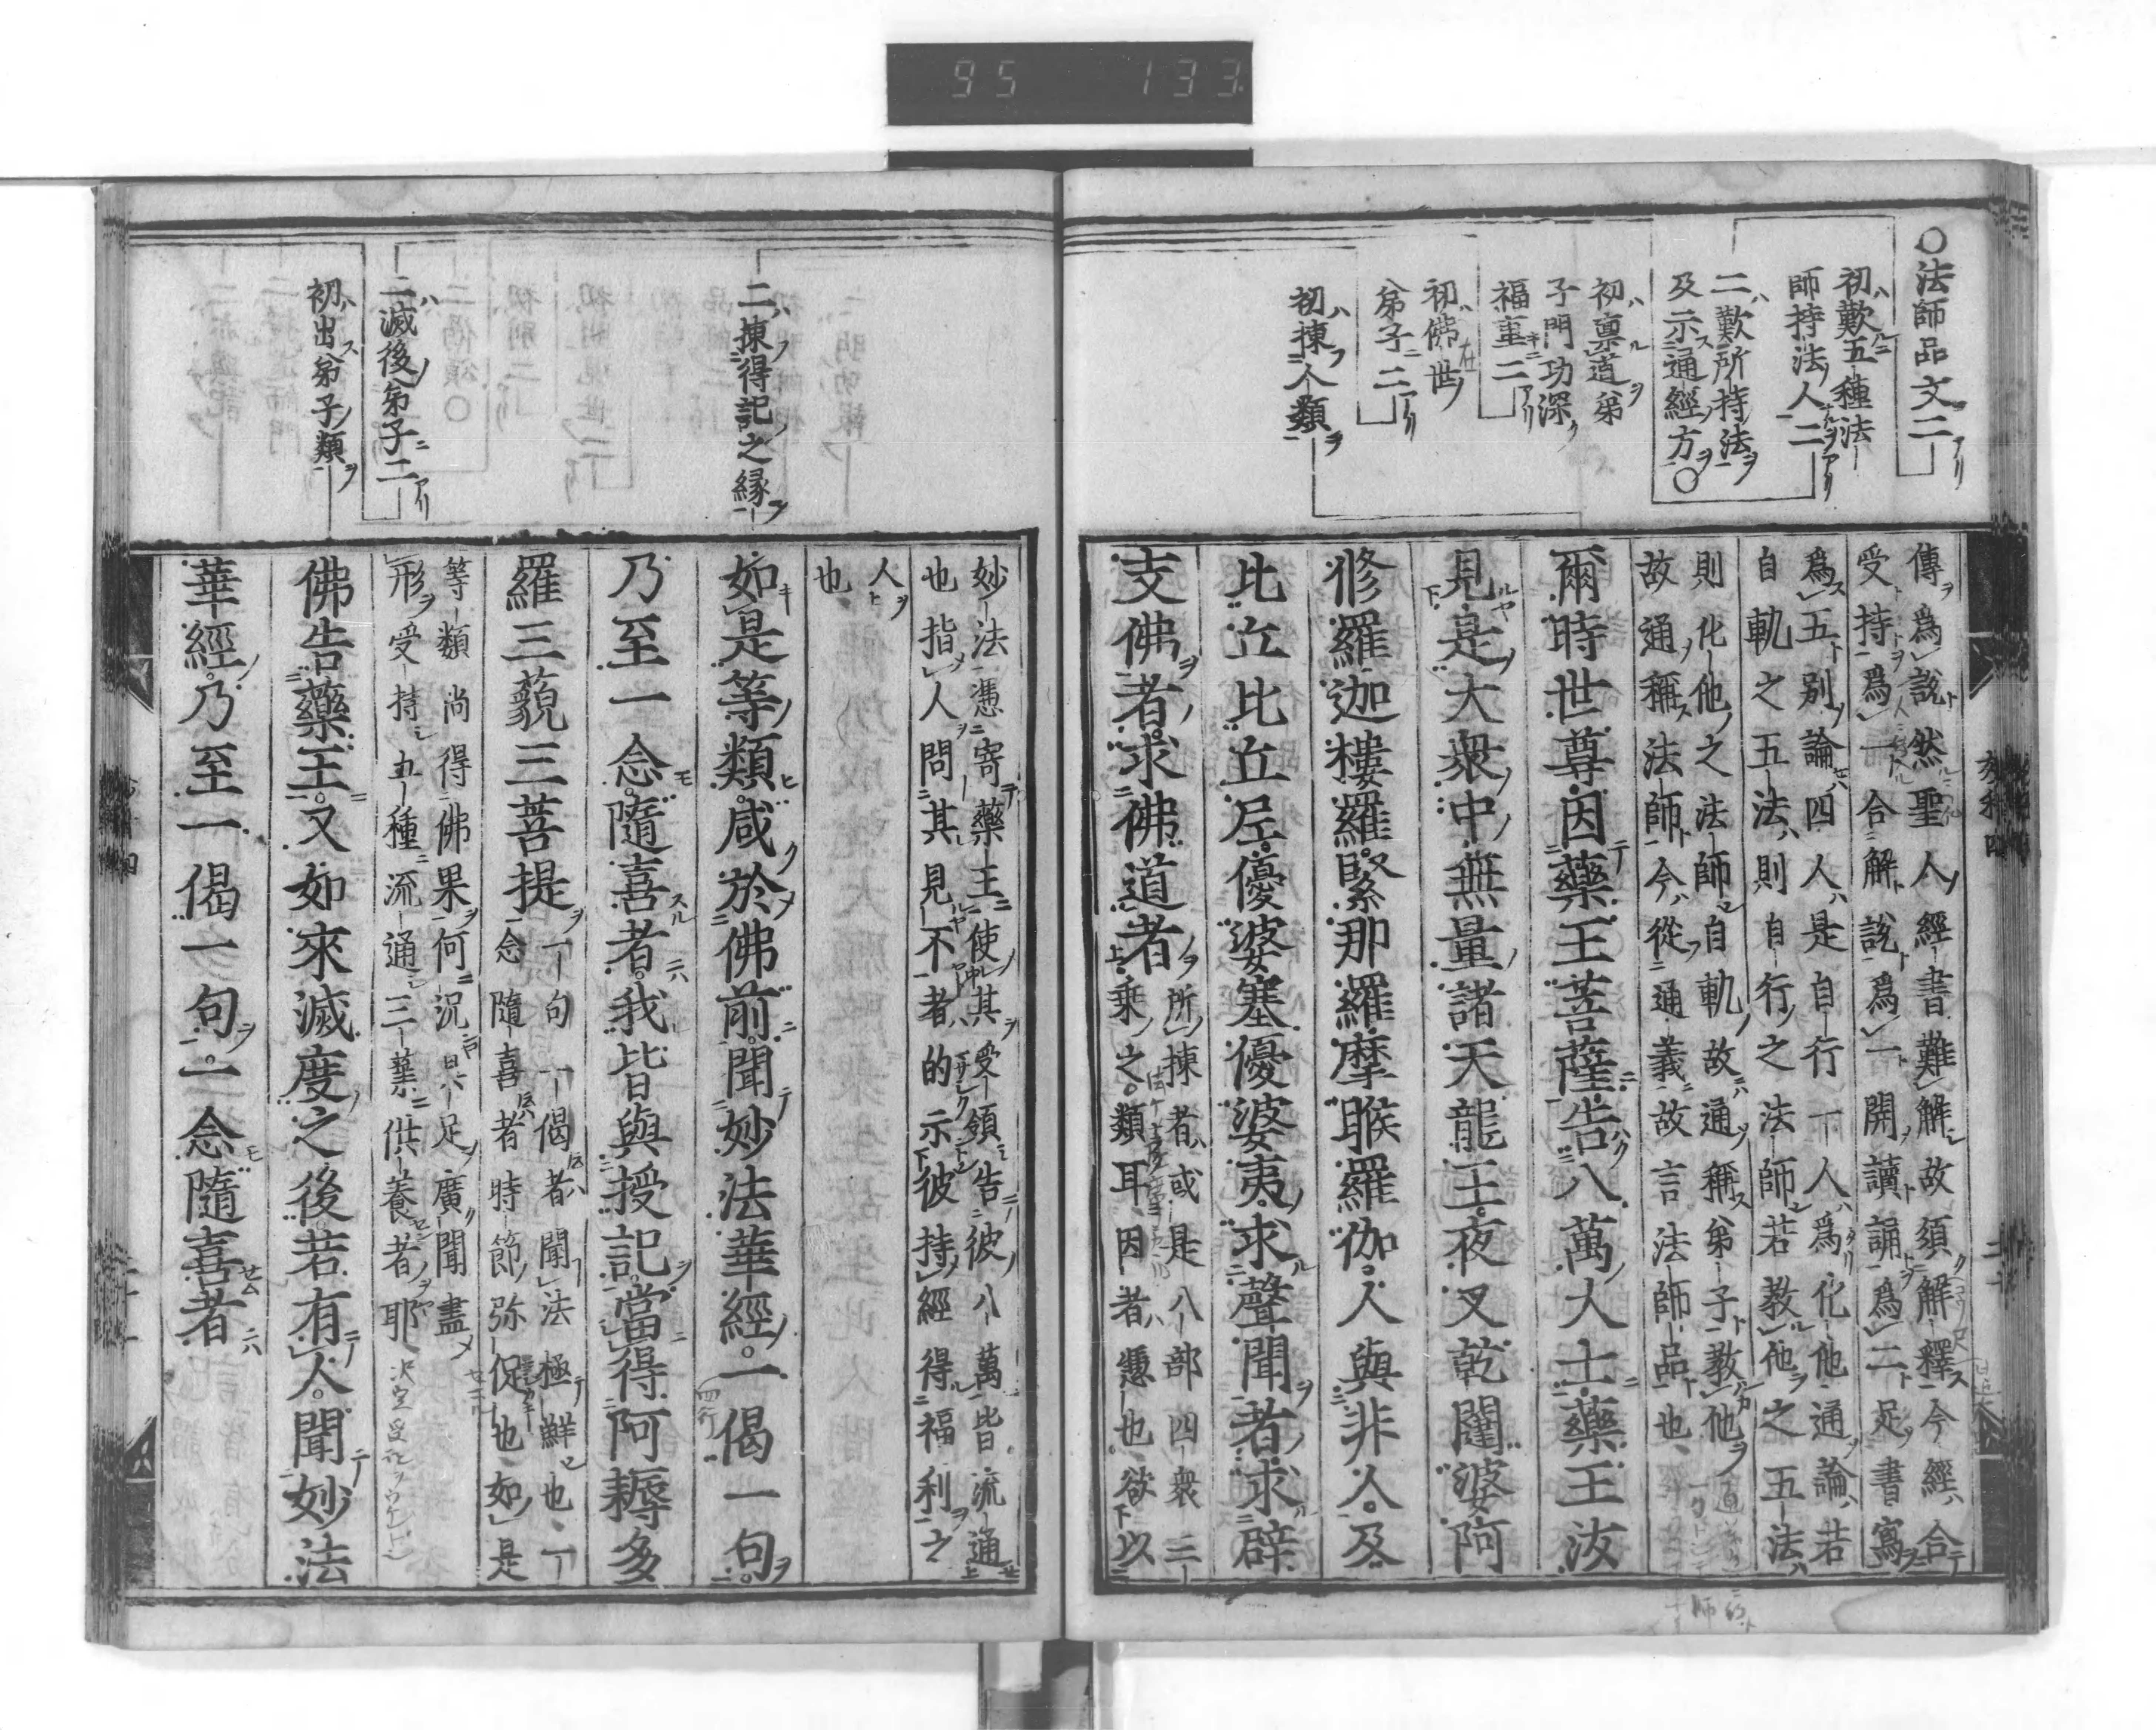 95 133
〇法師品文二
初歎五種法
師持法人二
二歎所持法
及示通經方〇
初禀道弟
子門功深
福重二
初佛世
弟子二
初揀人類
傳爲說然聖人經書難解故須解釋今經合
受持爲一合解說爲一開讀誦爲二足書寫
爲五別論四人是自行一人爲化他通論若
自軌之五法則自行之法師若教他之五法
則化他之法師自軌故通稱弟子教他
故通稱法師今從通義故言法師品也
爾時世尊因藥王菩薩告八萬大士藥王汝
見是大衆中無量諸天龍王夜叉乾闥婆阿
修羅迦樓羅緊那羅摩睺羅伽人與非人及
比丘比丘尼優婆塞優婆夷求聲聞者求辟
支佛者求佛道者
所揀者或是八部四衆三
乘之類耳因者憑也欲以
二揀得記之縁
二滅後弟子二
初出弟子類
妙法憑寄藥王使其受領告彼八萬皆流通
也指人問其見不者的示彼持經得福利之
人
也
如是等類咸於佛前聞妙法華經一偈一句
乃至一念隨喜者我皆與授記當得阿耨多
羅三藐三菩提
一句一偈者聞法極鮮也一
念隨喜者時節弥促也如是
等類尚得佛果何況具足廣聞盡
形受持五種流通三業供養者耶
佛告藥王又如來滅度之後若有人聞妙法
華經乃至一偈一句一念隨喜者